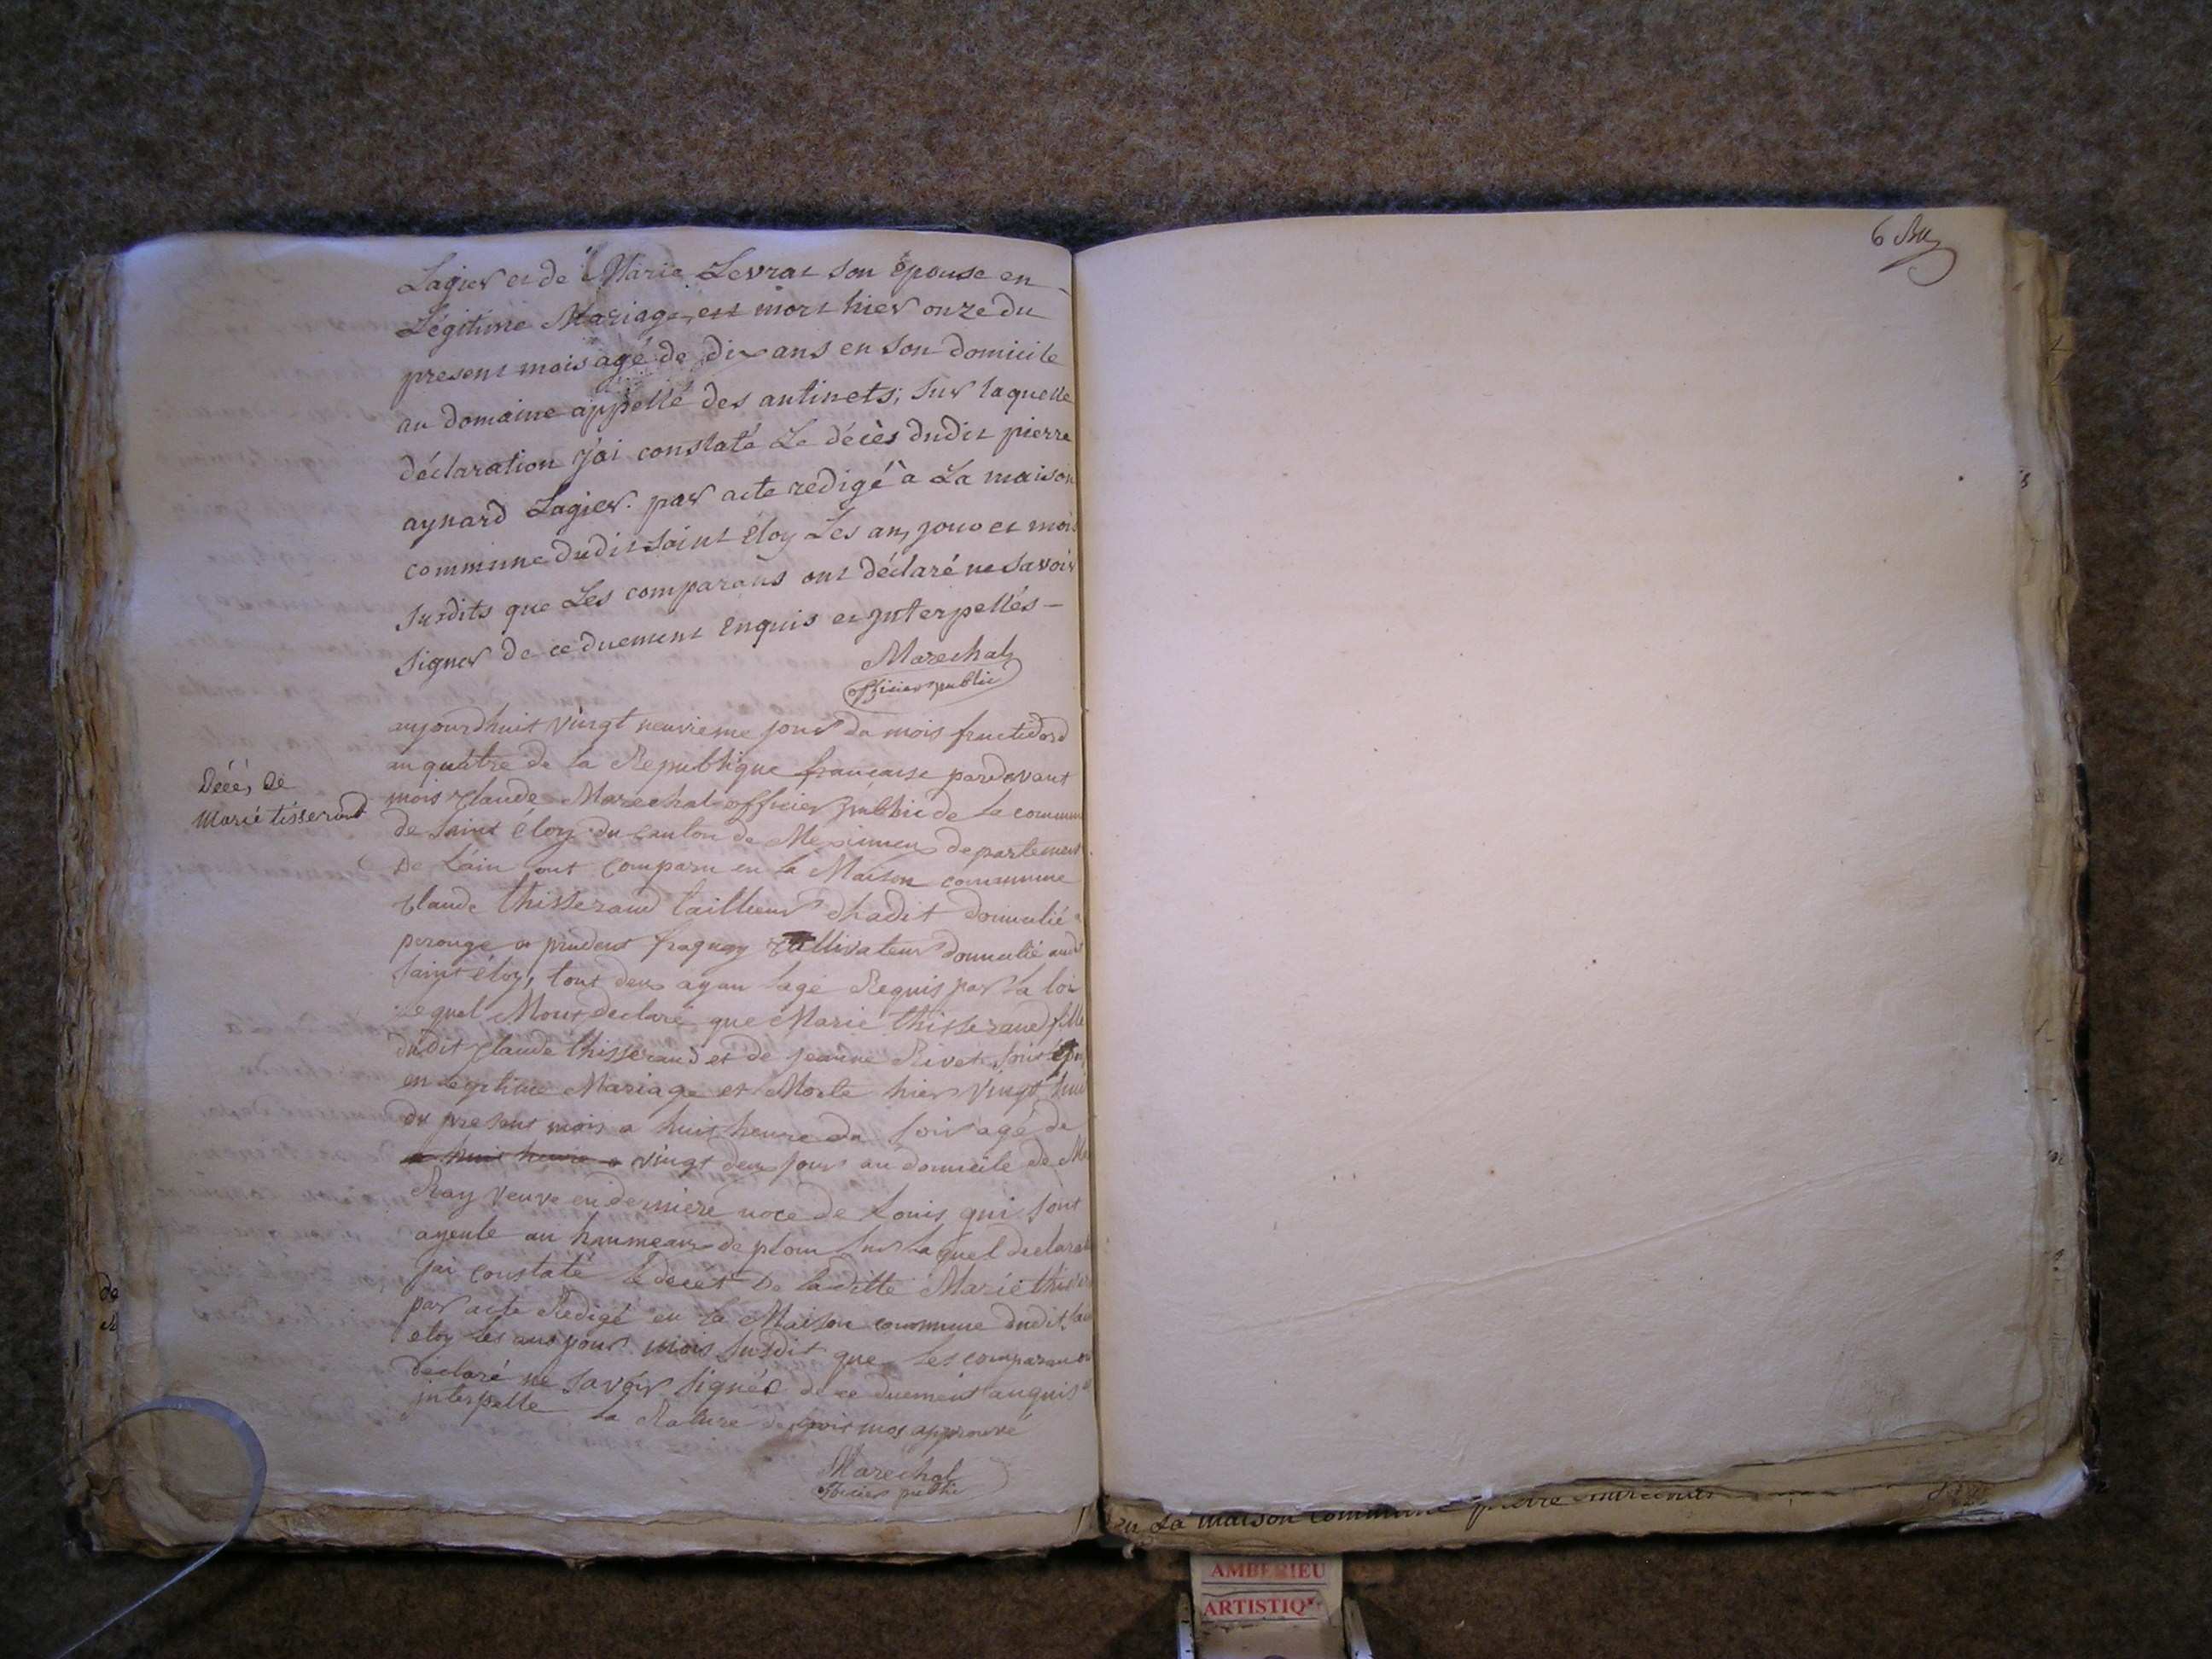 Lagier et de Marie Levrat son épouse en
Légitime Mariage, est mort hier onze du
present mois agé de dix ans en son domicile
au domaine appellé des antinets; sur laquelle
déclaration j'ai constaté Le décès dudit pierre
aynard Lagier. par acte redigé à La maison
commune dudit saint éloy Les an, jour et mois
susdits que Les comparans ont déclaré ne savoir
signer de ce duement Enquis et Interpellés
Marechal
officier public
Décés de
Marie tisserand
aujourdhuit vingt neuvieme jour du mois fructidord
an quatre de la Republique francaise pardevant
mois Claude Marechal officier public de la commune
de saint éloy du canton de Meximieux departement
De Lain sont comparu en la Maison commune
Claude thisserand tailleur dhadit domicilié
perouge a prudent fraguay Cultivateur domicilié audit
saint éloy, tout deux ayan lage Requis par la loi
lequel Mont declaré que Marie thisserand fille
dudit Claude thisserand et de jeanne Rivet
en Legitime Mariage et Morte hier vingt huit
du present mois a huit heure du soir agé de
a huit heure vingt deux jour au domicile de
Ray veuve en derniere noce de Louis qui sont
ayeule au hammeaux de plan sur laquel declarat
jai constaté le deces De laditte Marie
par acte Redigé en la Maison commune dudit
eloy les ans jour mois susdit que les comparan
declaré ne savoir signer de ce duement anquis
interpelle la Rature de trois mos approuvé
Marechal
officier public
6
en La maison commune pierre
AMBERIEU
ARTISTIQ